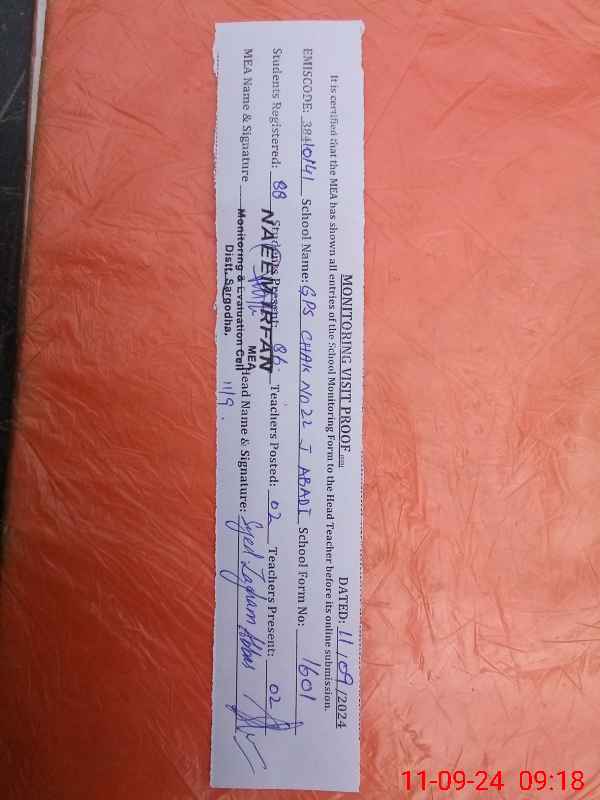 MONITORING VISIT PROOF
DATED: 11/09/2024
It is certified that the MEA has shown all entries of the School Monitoring Form to the Head Teacher before its online submission.
EMISCODE: 38410141 School Name: GPS CHAK NO 22 J ABADI School Form No: 1601
Students Registered: 88 Students Present: 86 Teachers Posted: 02 Teachers Present: 02
MEA Name & Signature Head Name & Signature: Syed Zagham Abbas
NAEEM IRFAN
MEA
Monitoring & Evaluation Cell
Distt. Sargodha.
11/9.
11-09-24 09:18